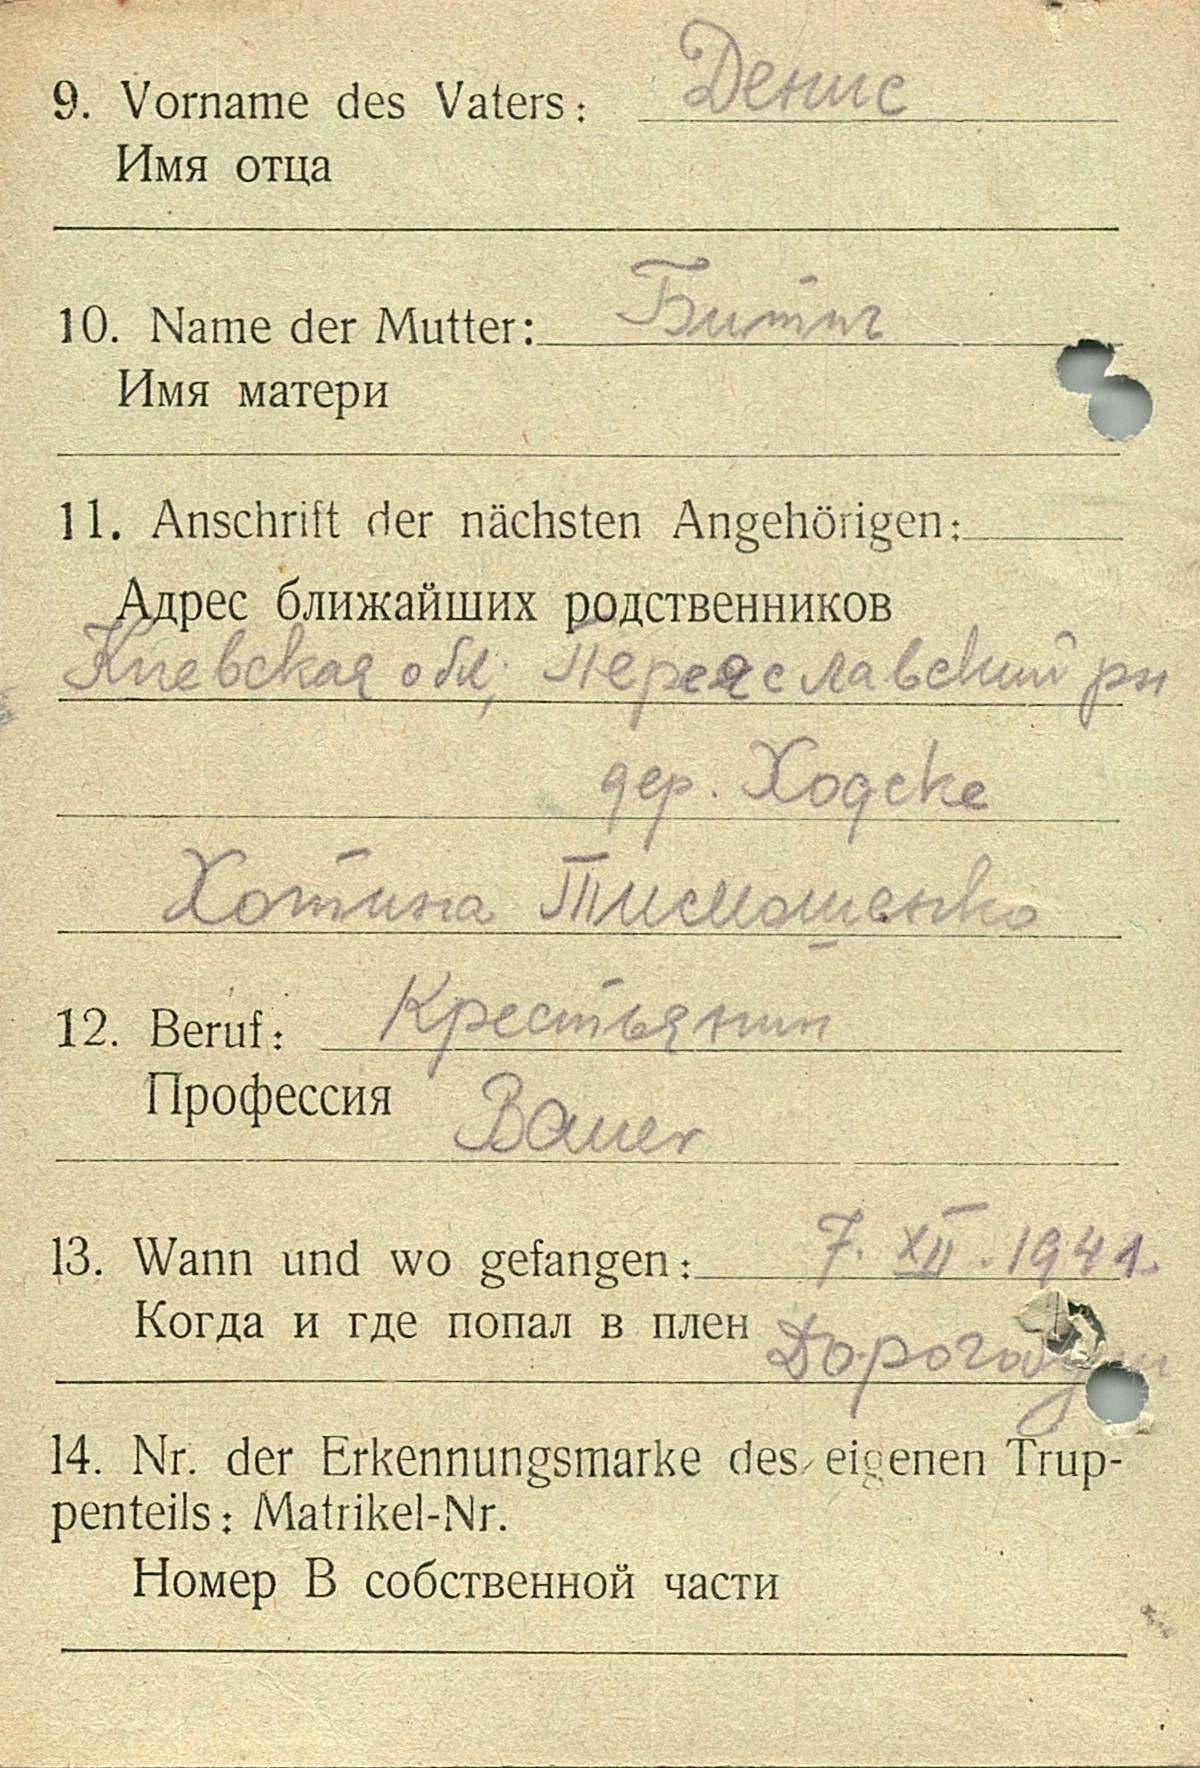 9. Vorname des Vaters: Денис
Имя отца
10. Name der Mutter:
Имя матери
11. Anschrift der nächsten Angehörigen:
Адрес ближайших родственников
Киевская обл, Переяславский рн
дер. Ходске
Хотина Тимошенко
12. Beruf: Крестьянин
Профессия Bauer
13. Wann und wo gefangen: 7. XII. 1941.
Когда и где попал в плен
14. Nr. der Erkennungsmarke des eigenen Trup-
penteils: Matrikel-Nr.
Номер В собственной части